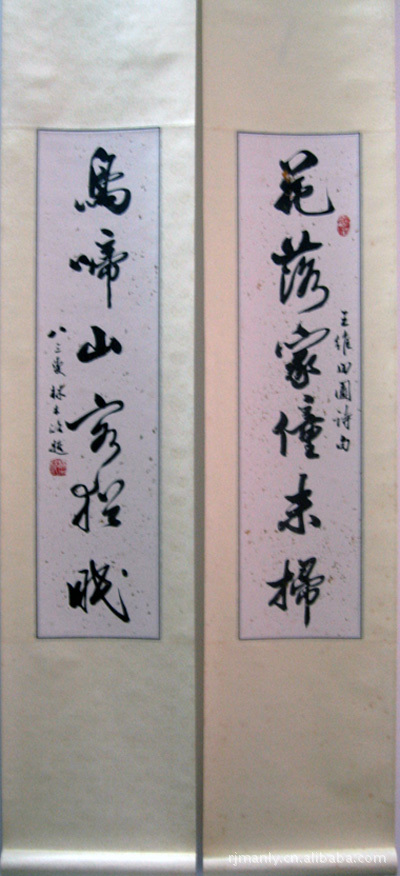 花落家僮未掃
王維田園詩句
鳥啼山客猶眠
八三叟林士題
rjmanly.cn.alibaba.com